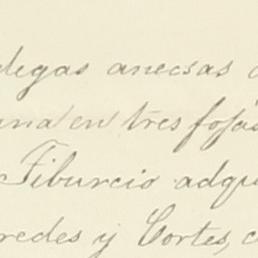 degas anecsas
una en tres fojas
Tiburcio adqu
redes y Cortes, c